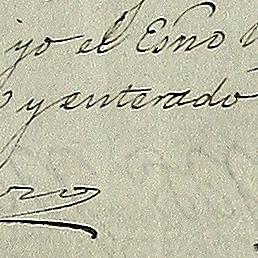 yo el Esño
y enterado